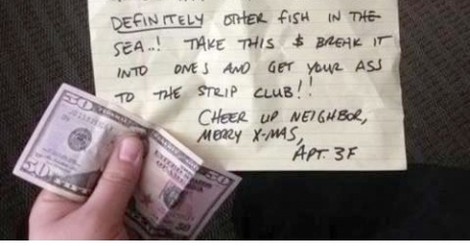 DEFINITELY OTHER FISH IN THE
SEA..! TAKE THIS $ BREAK IT
INTO ONES AND GET YOUR ASS
TO THE STRIP CLUB!!
CHEER UP NEIGHBOR,
MERRY X-MAS,
APT. 3F
50
50
50